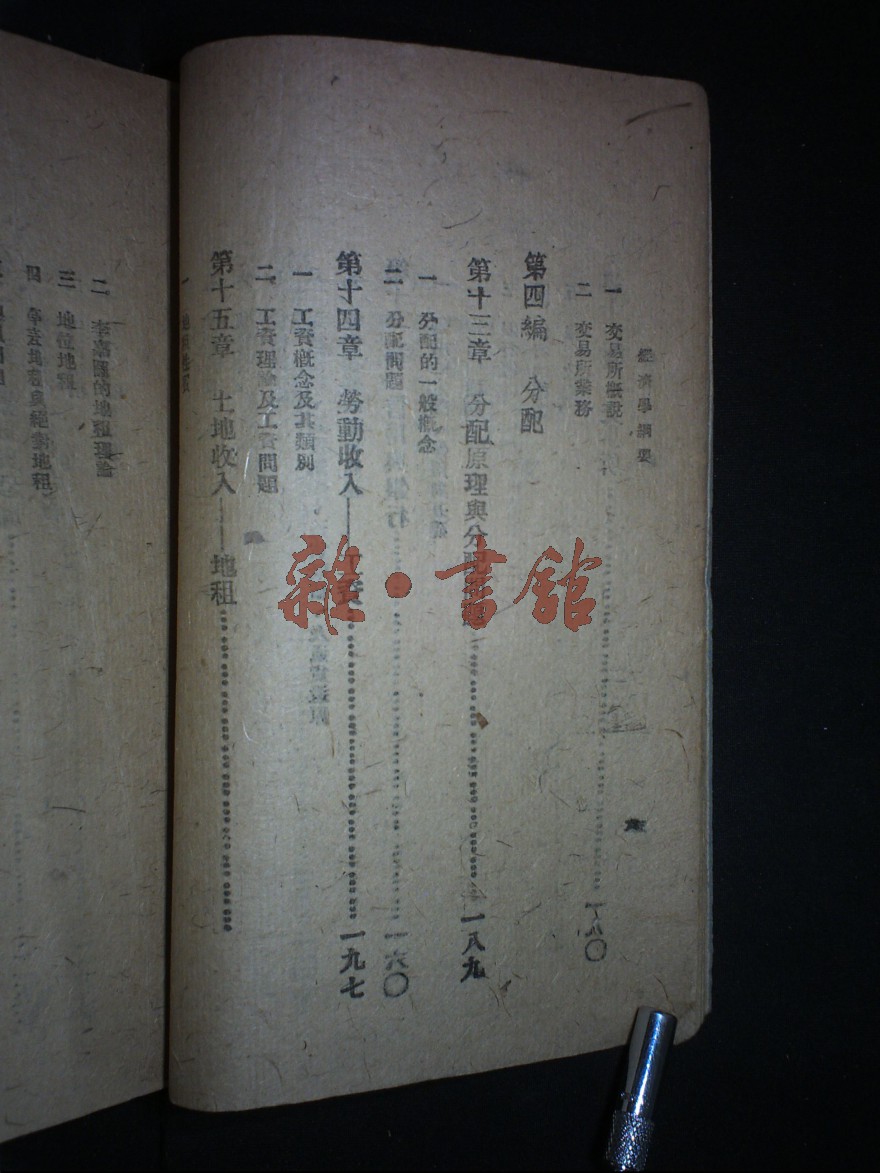 經濟學綱要
一 交易所概說
二 交易所業務
第四編 分配
第十三章 分配原理與分配……一八九
一 分配的一般概念
二 分配問題
第十四章 勞動收入——工資……一九七
一 工資概念及其類別
二 工資理論及工資問題
第十五章 土地收入——地租……
一
二 李嘉圖的地租理論
三 地位地租
四 地租與絕對地租
雜·書館